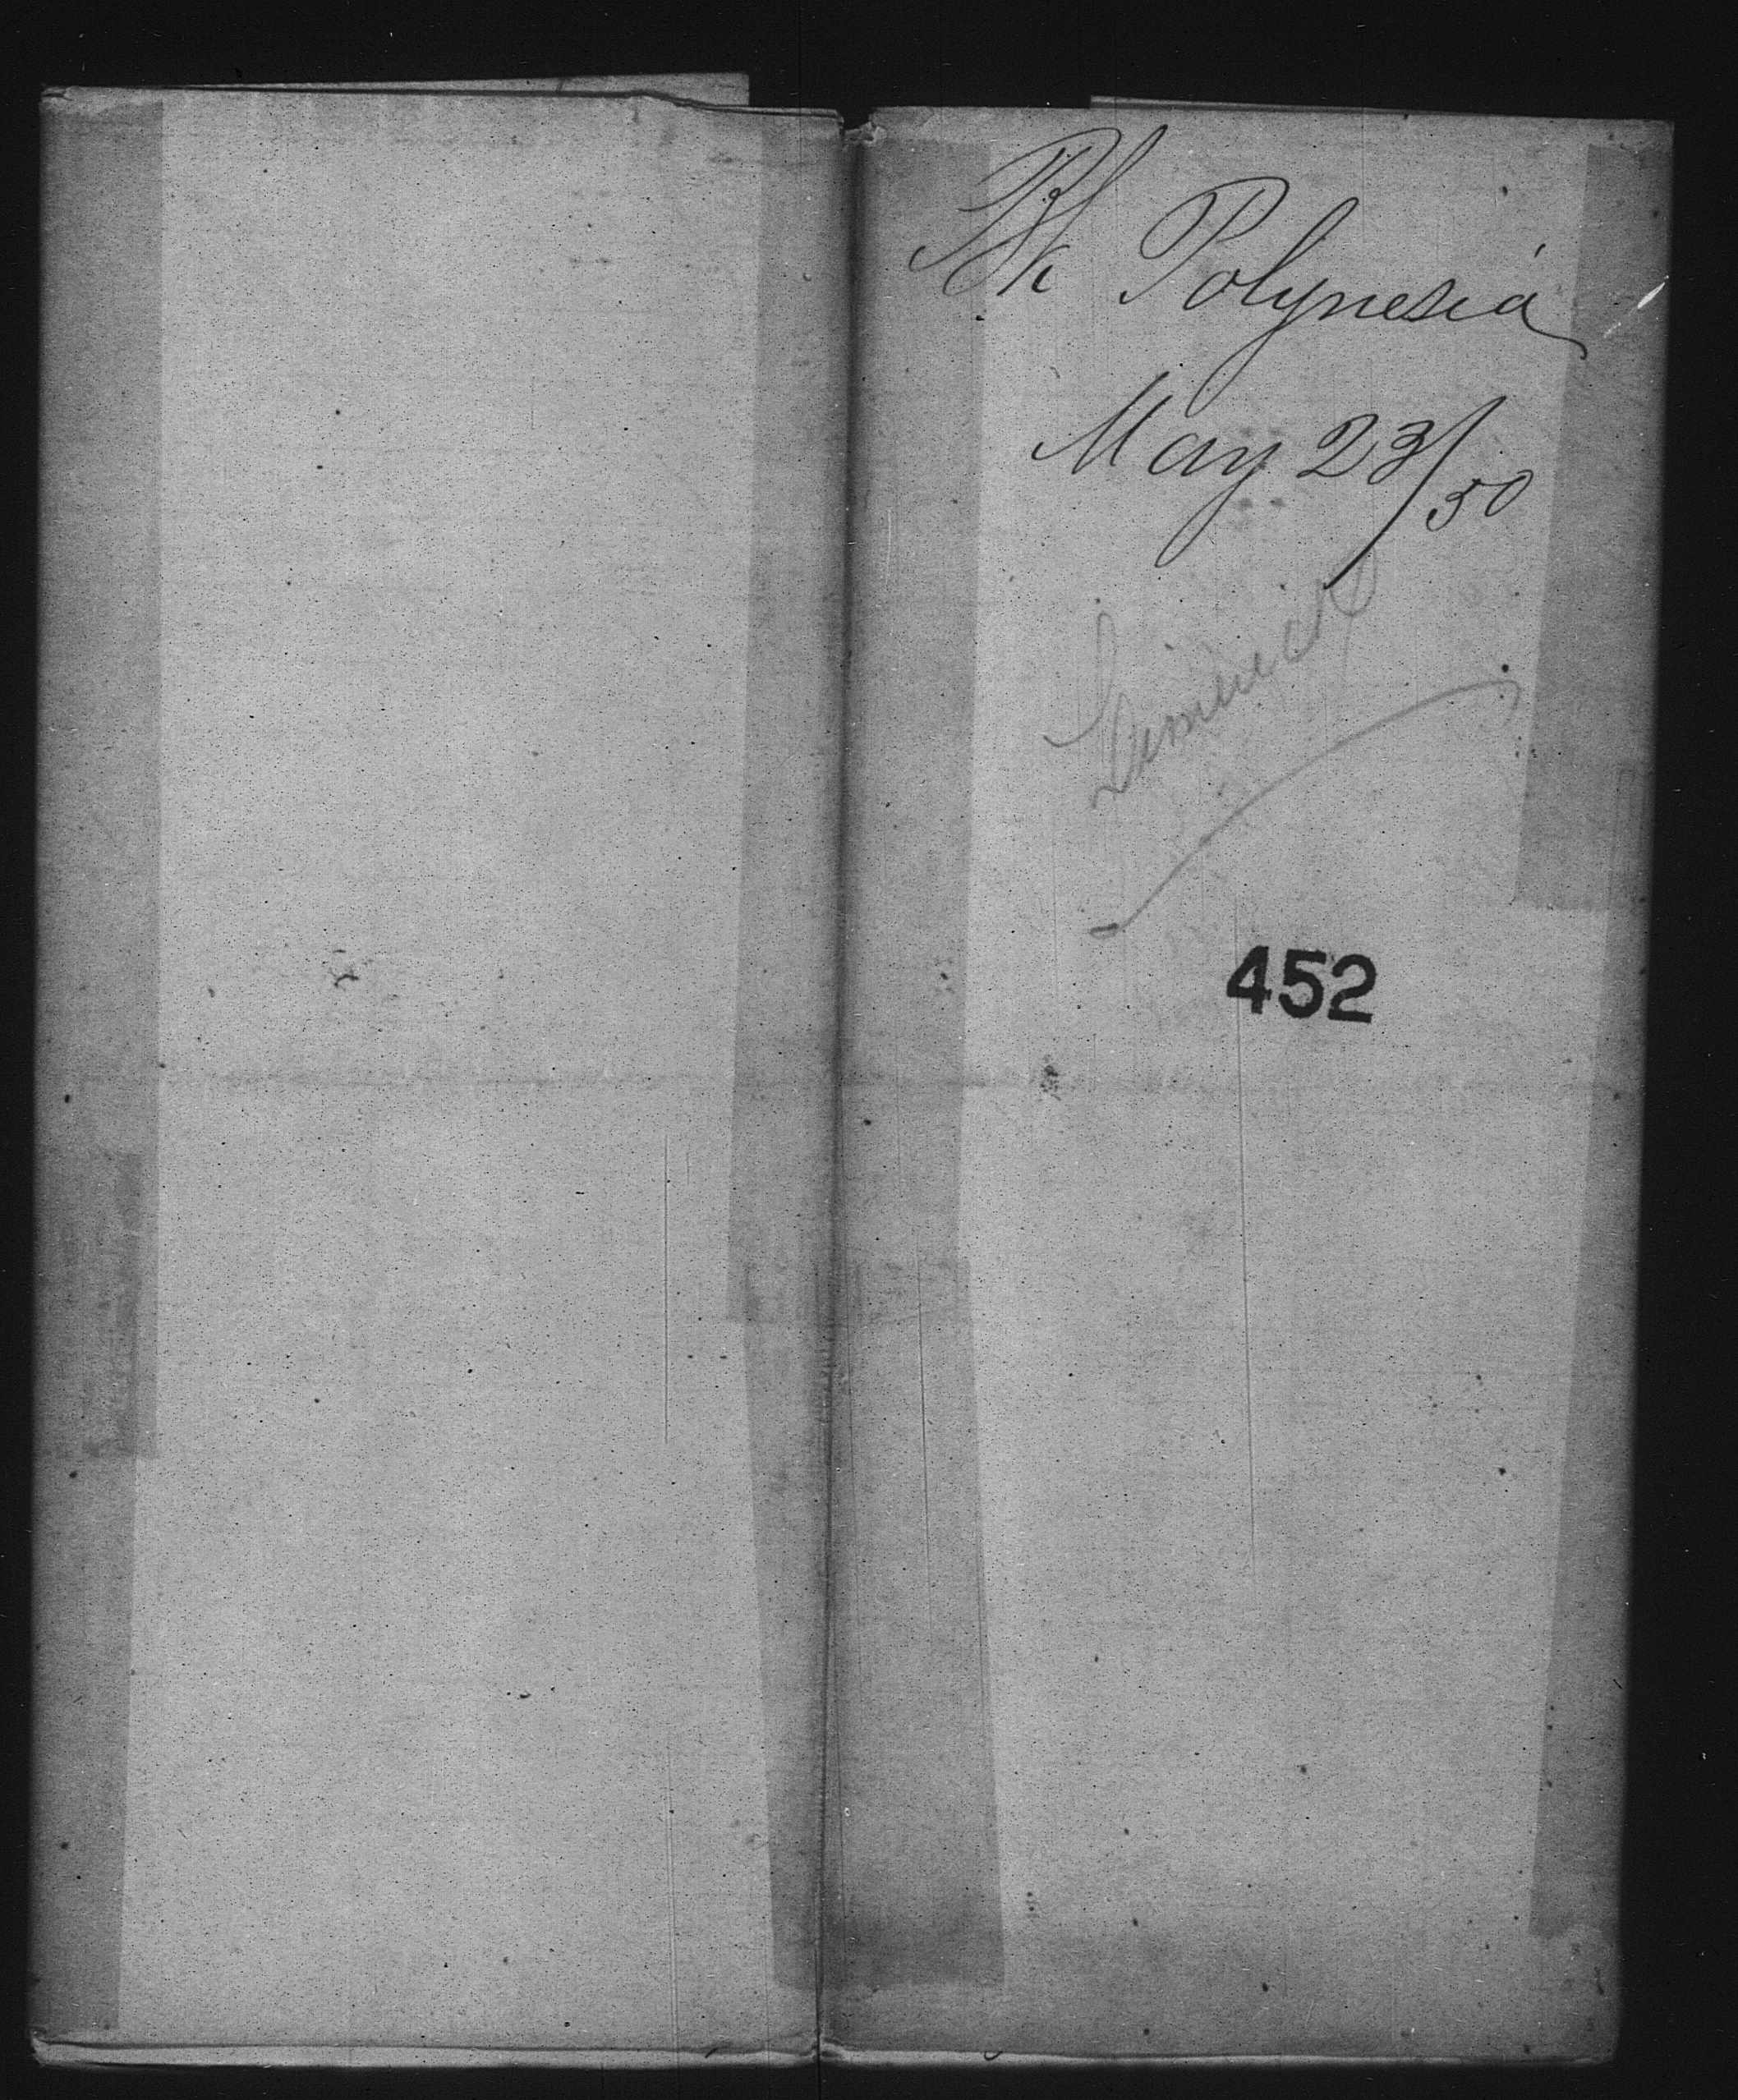 Bk Polynesia
May 23/50
Limerick
452